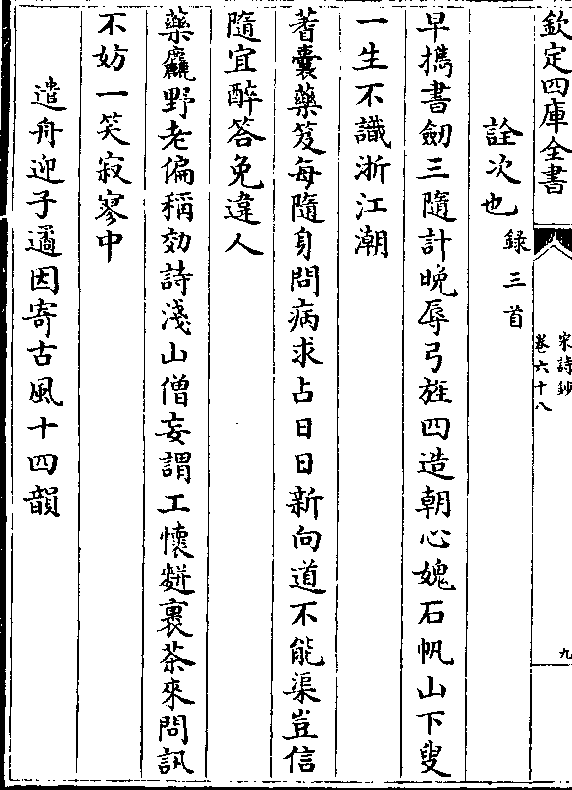 欽定四庫全書
宋詩鈔
卷六十八
九
詮次也錄三首
早攜書劒三隨計晚辱弓旌四造朝心媿石帆山下叟
一生不識浙江潮
蓍囊藥笈每隨身問病求占日日新向道不能渠豈信
隨宜醉答免違人
藥麤野老偏稱効詩淺山僧妄謂工懷餅裹茶來問訊
不妨一笑寂寥中
遣舟迎子遹因寄古風十四韻